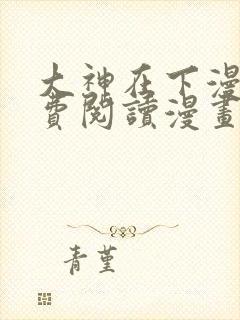 大神在下漫
費閱讀漫畫
青堇